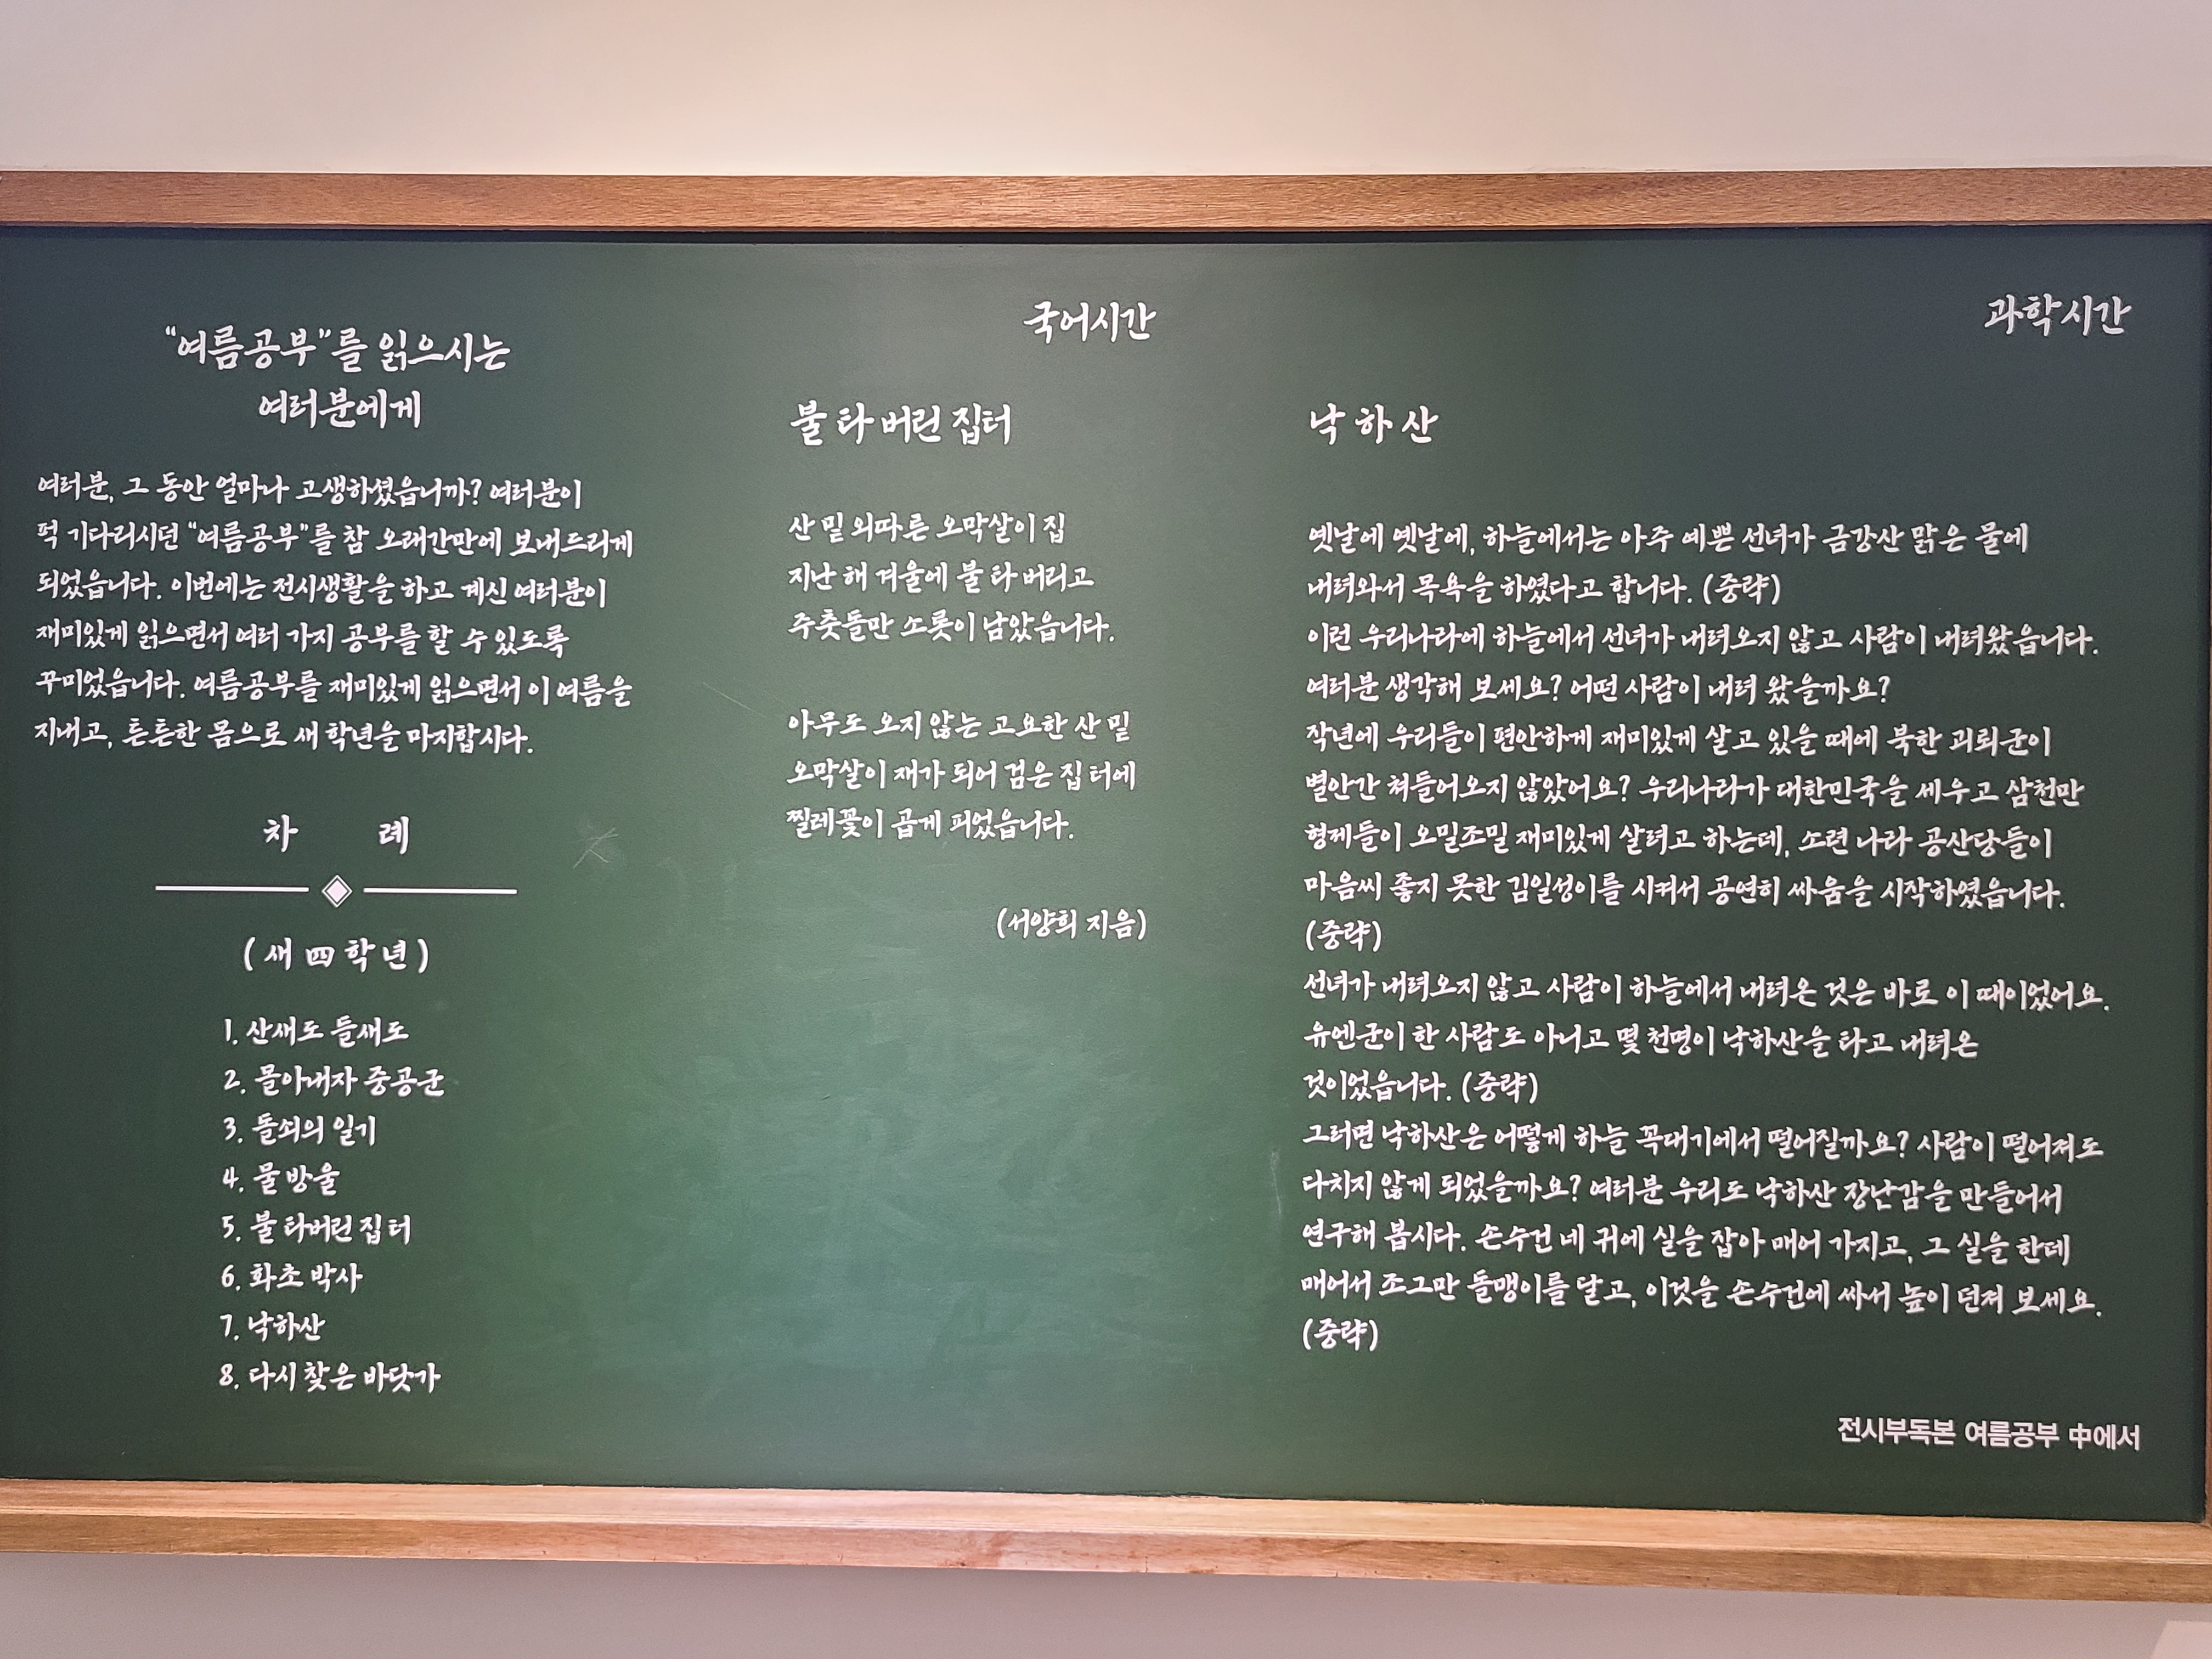 "여름공부"를 읽으시는
여러분에게
여러분, 그 동안 얼마나 고생하셨읍니까? 여러분이
퍽 기다리시던 "여름공부"를 참 오래간만에 보내드리게
되었읍니다. 이번에는 전시생활을 하고 계신 여러분이
재미있게 읽으면서 여러 가지 공부를 할 수 있도록
꾸미었읍니다. 여름공부를 재미있게 읽으면서 이 여름을
지내고, 튼튼한 몸으로 새 학년을 마지합시다.
차 례
(새 四 학년)
1. 산새도 들새도
2. 몰아내자 중공군
3. 돌쇠의 일기
4. 물방울
5. 불 타버린 집터
6. 화초 박사
7. 낙하산
8. 다시 찾은 바닷가
국어시간
불 타 버린 집터
산 밑 외따른 오막살이 집
지난 해 겨울에 불 타 버리고
주춧돌만 소롯이 남았읍니다.
아무도 오지 않는 고요한 산 밑
오막살이 재가 되어 검은 집터에
찔레꽃이 곱게 피었읍니다.
(서양희 지음)
과학시간
낙 하 산
옛날에 옛날에, 하늘에서는 아주 예쁜 선녀가 금강산 맑은 물에
내려와서 목욕을 하였다고 합니다. (중략)
이런 우리나라에 하늘에서 선녀가 내려오지 않고 사람이 내려왔읍니다.
여러분 생각해 보세요? 어떤 사람이 내려 왔을까요?
작년에 우리들이 편안하게 재미있게 살고 있을 때에 북한 괴뢰군이
별안간 쳐들어오지 않았어요? 우리나라가 대한민국을 세우고 삼천만
형제들이 오밀조밀 재미있게 살려고 하는데, 소련 나라 공산당들이
마음씨 좋지 못한 김일성이를 시켜서 공연히 싸움을 시작하였읍니다.
(중략)
선녀가 내려오지 않고 사람이 하늘에서 내려온 것은 바로 이 때이었어요.
유엔군이 한 사람도 아니고 몇 천명이 낙하산을 타고 내려온
것이었읍니다. (중략)
그러면 낙하산은 어떻게 하늘 꼭대기에서 떨어질까요? 사람이 떨어져도
다치지 않게 되었을까요? 여러분 우리도 낙하산 장난감을 만들어서
연구해 봅시다. 손수건 네 귀에 실을 잡아 매어 가지고, 그 실을 한데
매어서 조그만 돌맹이를 달고, 이것을 손수건에 싸서 높이 던져 보세요.
(중략)
전시부독본 여름공부 中에서